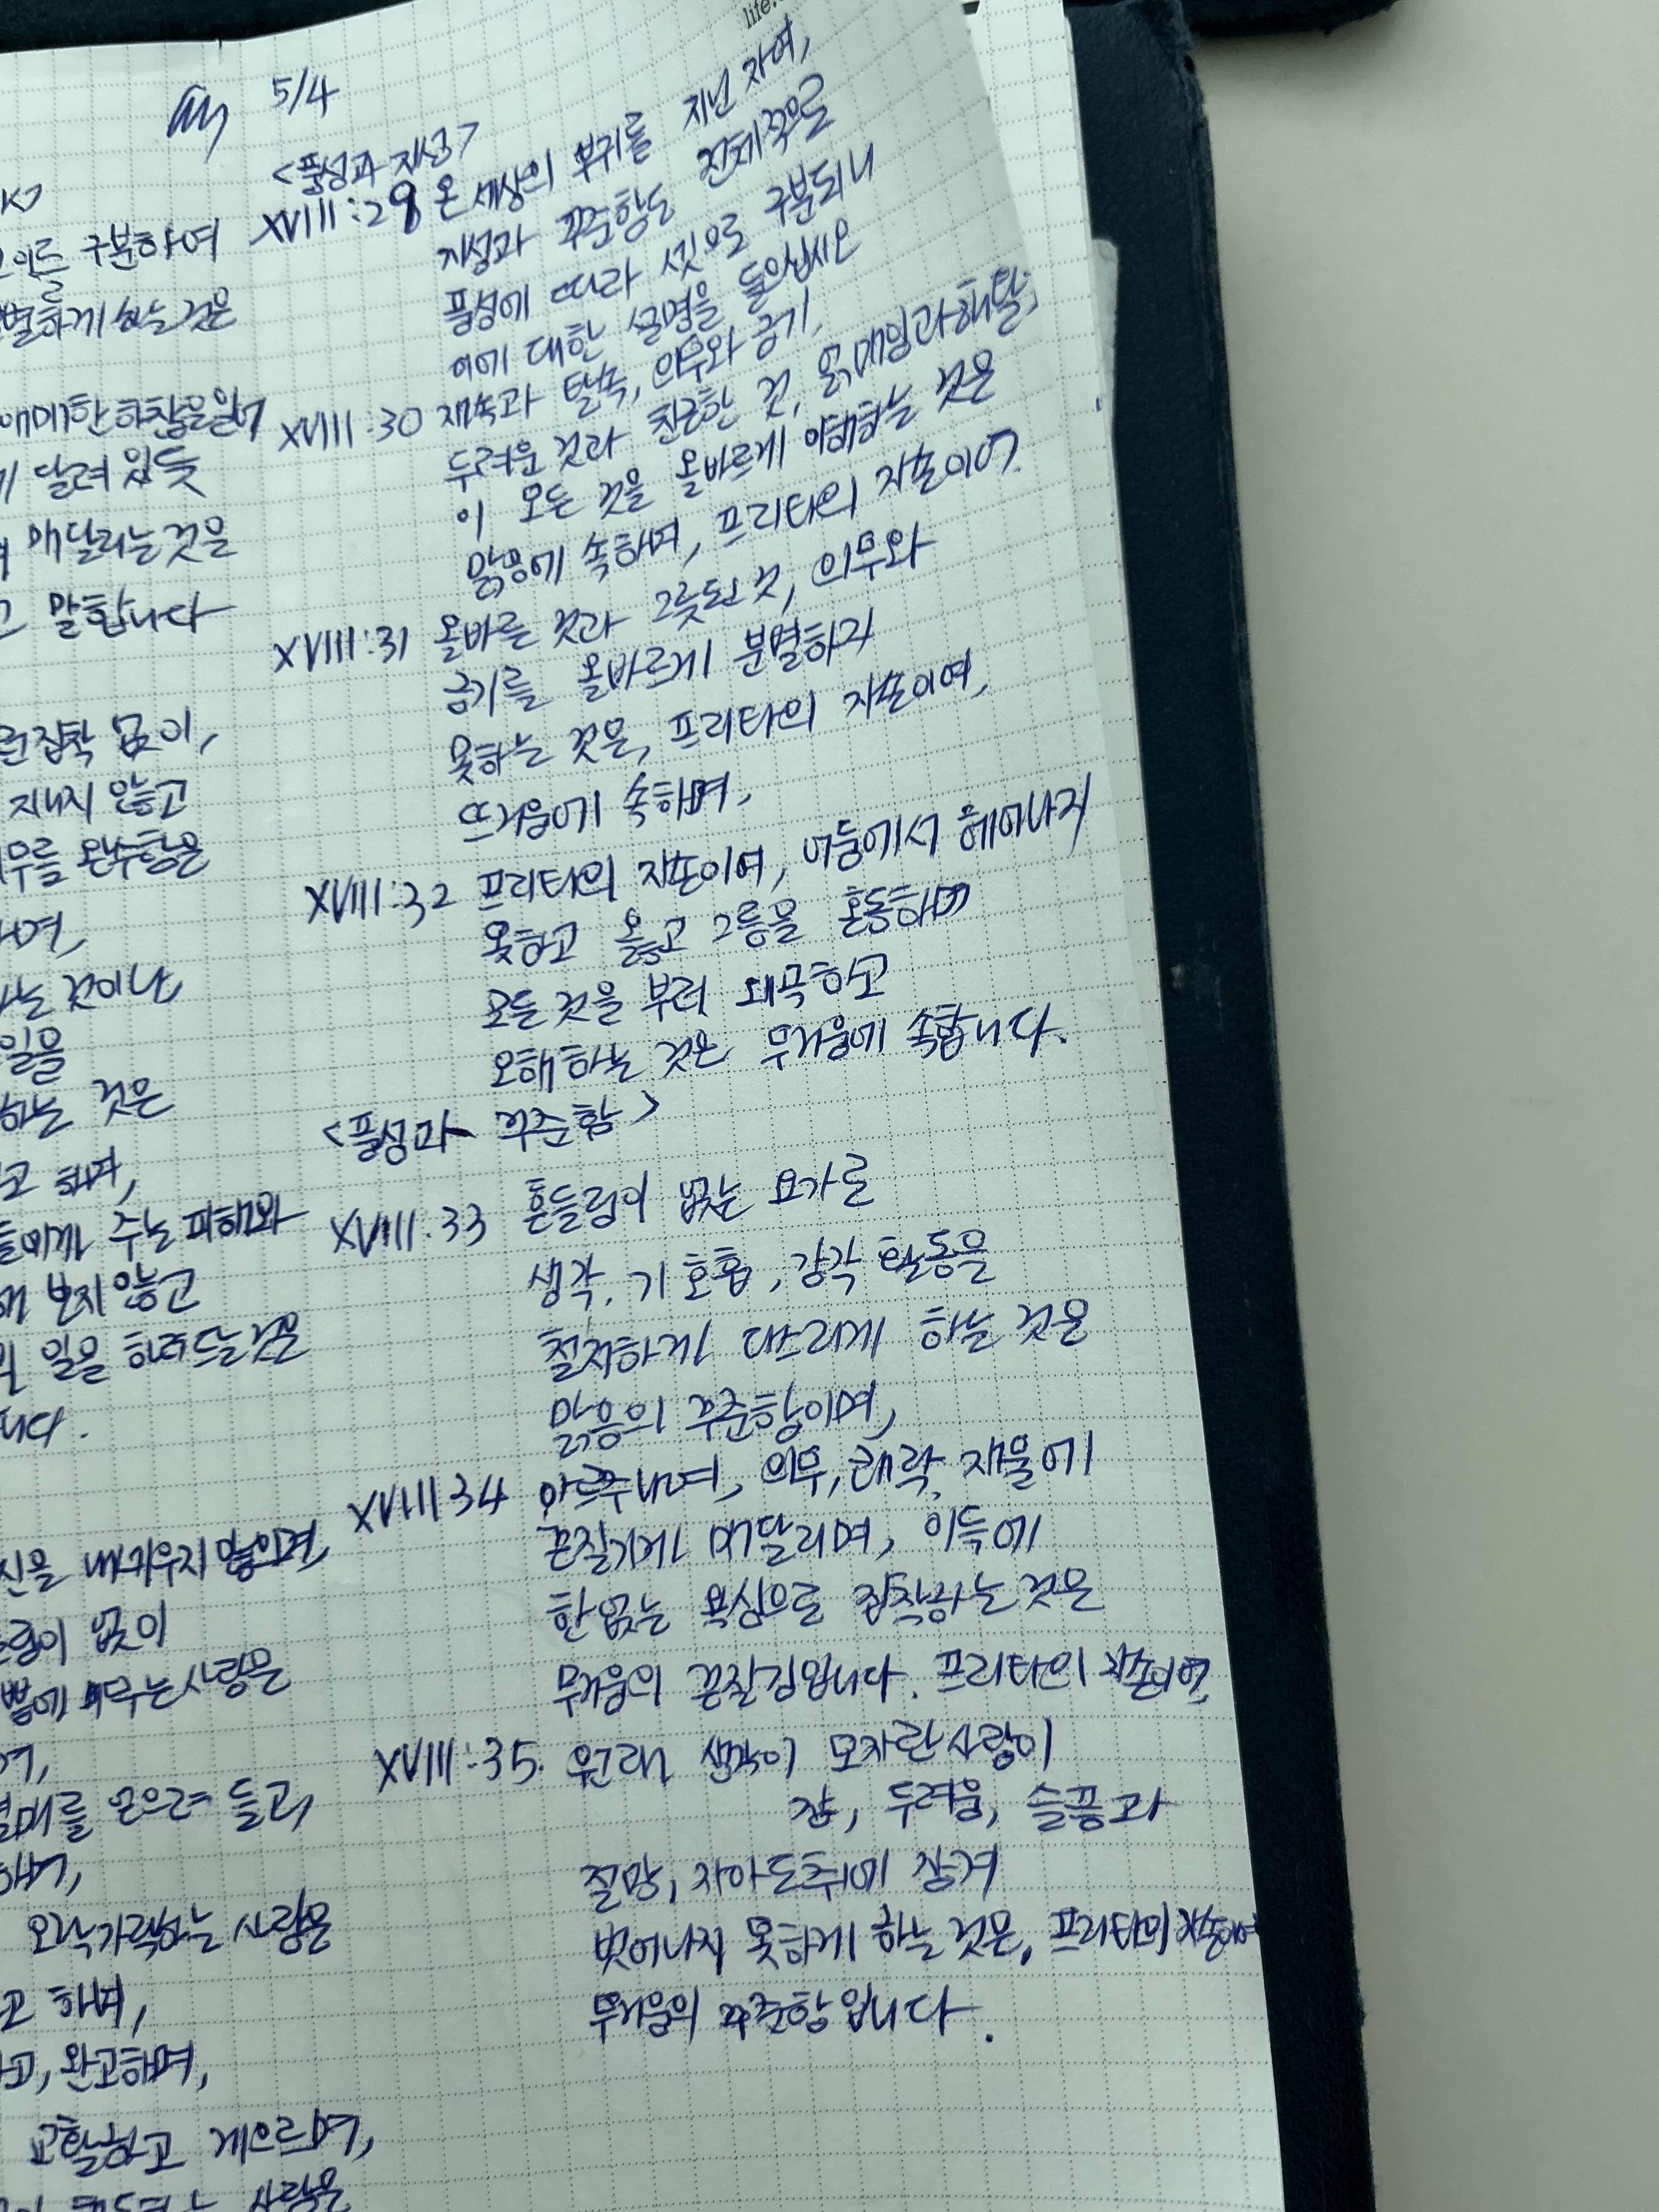 life.
5/4
<풍성과 지성>
XVIII:29 온 세상의 부귀를 지닌 자여,
지성과 꾸준함도 전체적으로
풍성에 따라 셋으로 구분되니
이에 대한 설명을 들으십시오
XVIII:30 재속과 탈속, 의무와 금기,
두려운 것과 친근한 것, 옭매임과 해탈,
이 모든 것을 올바르게 이해하는 것은
맑음에 속하며, 프리타의 자손이여.
XVIII:31 올바른 것과 그릇된 것, 의무와
금기를 올바르게 분별하지
못하는 것은, 프리타의 자손이여,
뜨거움에 속하며,
XVIII:32 프리타의 자손이여, 어둠에서 헤어나지
못하고 옳고 그름을 혼동하며
모든 것을 부러 왜곡하고
오해하는 것은 무거움에 속합니다.
<풍성과 꾸준함>
XVIII.33 흔들림이 없는 요가로
생각, 기 호흡, 감각 활동을
철저하게 다스리게 하는 것은
맑음의 꾸준함이며,
XVIII 34 아르주나여, 의무, 쾌락, 재물에
끈질기게 매달리며, 이득에
한없는 욕심으로 집착하는 것은
무거움의 끈질김입니다. 프리타의 자손이여,
XVIII:35. 원래 생각이 모자란 사람이
잠, 두려움, 슬픔과
절망, 자아도취에 잠겨
벗어나지 못하게 하는 것은, 프리타의 자손이여
무거움의 꾸준함입니다.
구분하여
하는 것은
애매한 하찮은 일에
달려 있듯
매달리는 것은
말합니다
집착 없이,
지니지 않고
완수함은
것이나
일을
하는 것은
하며,
주는 피해와
보지 않고
일을 하려드는 것은
니다.
내키우지 않으며,
없이
사람은
얻으려 들고,
하며,
오락가락하는 사람은
하며,
완고하며,
교활하고 게으르며,
사람은